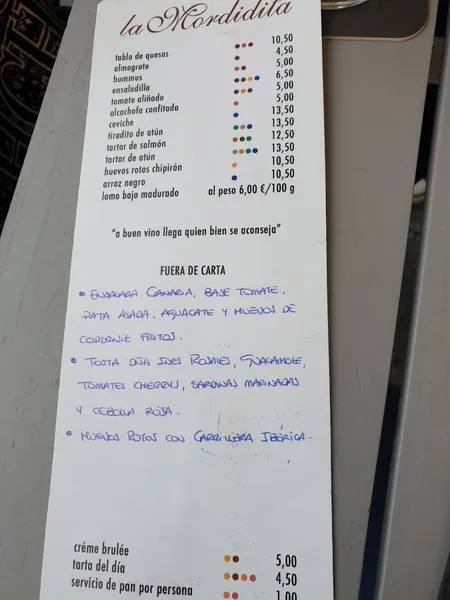 la Mordidita
tabla de quesos 10,50
almogrote 4,50
hummus 5,00
ensaladilla 6,50
tomate aliñado 5,00
alcachofa confitada 5,00
ceviche 13,50
tiradito de atún 13,50
tartar de salmón 12,50
tartar de atún 13,50
huevos rotos chipirón 10,50
arroz negro 10,50
lomo bajo madurado al peso 6,00 €/100 g
"a buen vino llega quien bien se aconseja"
FUERA DE CARTA
• ENSALADA CANARIA, BASE TOMATE,
PATA ASADA, AGUACATE Y HUEVOS DE
CODORNIZ FRITOS.
• TOSTA DÑA INES ROSALES, GUACAMOLE,
TOMATES CHERRYS, SARDINAS MARINADAS
Y CEBOLLA ROJA.
• HUEVOS ROTOS CON CARRILLERA IBÉRICA.
créme brulée 5,00
tarta del día 4,50
servicio de pan por persona 1,00